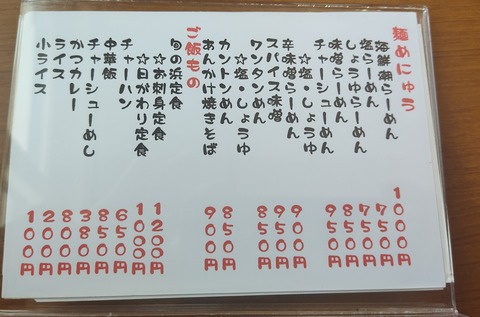 麺めにゅう
海鮮潮らーめん 1000円
塩らーめん 750円
しょうゆらーめん 750円
味噌らーめん 850円
チャーシューめん 950円
☆塩・しょうゆ
辛味噌らーめん 900円
スパイス味噌 950円
ワンタンめん 850円
☆塩・しょうゆ
カントンめん 850円
あんかけ焼きそば 900円
ご飯もの
旬の浜定食
☆お刺身定食 1200円
☆日がわり定食 1000円
チャーハン 650円
中華飯 850円
チャーシューめし 380円
かつカレー 800円
ライス 200円
小ライス 100円